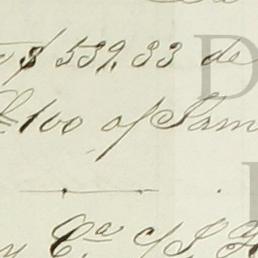 $ 539,33 de
100 of Sam
y Cª c/ J.